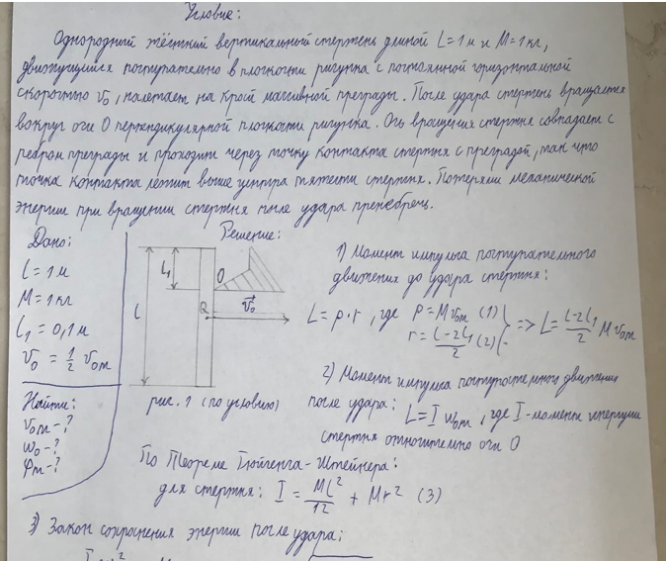 Условие:
Однородный жёсткий вертикальный стержень длиной L=1м и M=1кг,
движущийся поступательно в плоскости рисунка с постоянной горизонтальной
скоростью v₀, налетает на край массивной преграды. После удара стержень вращается
вокруг оси O перпендикулярной плоскости рисунка. Ось вращения стержня совпадает с
ребром преграды и проходит через точку контакта стержня с преградой, так что
точка контакта лежит выше центра тяжести стержня. Потерями механической
энергии при вращении стержня после удара пренебречь.
Дано:
L=1м
M=1кг
L₁=0,1м
v₀=½ v₀m
Найти:
v₀m-?
ω₀-?
φm-?
Решение:
L
L₁
O
v₀
рис. 1 (по условию)
1) Момент импульса поступательного
движения до удара стержня:
L=p·r, где p=Mv₀m (1)
r=(L-2L₁)/2 (2)
=> L=(L-2L₁)/2 Mv₀m
2) Момент импульса поступательного движения
после удара: L=Iω₀m, где I-момент инерции
стержня относительно оси O
По Теореме Гюйгенса-Штейнера:
для стержня: I=ML²/12+Mr² (3)
3) Закон сохранения энергии после удара: